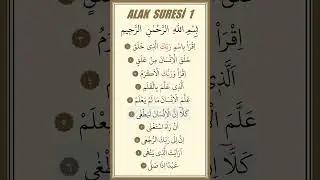 ALAK SURESİ 1
بِسْمِ اللهِ الرَّحْمٰنِ الرَّحِيمِ
اِقْرَأْ بِاسْمِ رَبِّكَ الَّذِى خَلَقَ
خَلَقَ الْاِنْسَانَ مِنْ عَلَقٍ
اِقْرَأْ وَرَبُّكَ الْاَكْرَمُ
اَلَّذِى عَلَّمَ بِالْقَلَمِ
عَلَّمَ الْاِنْسَانَ مَا لَمْ يَعْلَمْ
كَلَّٓا اِنَّ الْاِنْسَانَ لَيَطْغٰى
اَنْ رَاٰهُ اسْتَغْنٰى
اِنَّ اِلٰى رَبِّكَ الرُّجْعٰى
اَرَاَيْتَ الَّذِى يَنْهٰى
عَبْدًا اِذَا صَلّٰى